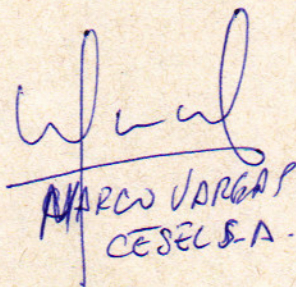 MARCO VARGAS
CESEL S.A.